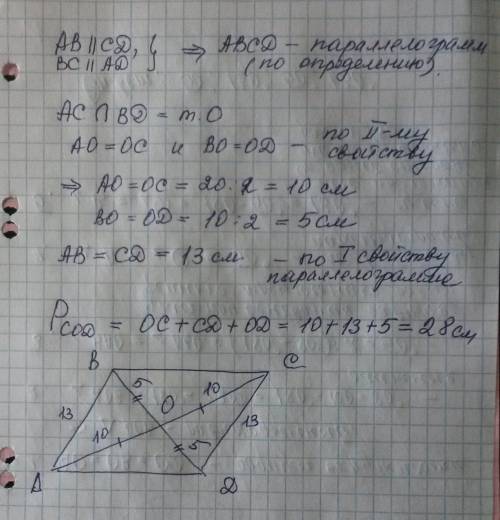 AB || CD, } ⇒ ABCD – параллелограмм
BC || AD (по определению).
AC ∩ BD = т.O
AO = OC и BO = OD – по II-му свойству
⇒ AO = OC = 20 : 2 = 10 см
BO = OD = 10 : 2 = 5 см
AB = CD = 13 см – по I свойству
параллелограмма
P COD = OC + CD + OD = 10 + 13 + 5 = 28 см
B C
5 10
13 O 13
10 5
A D